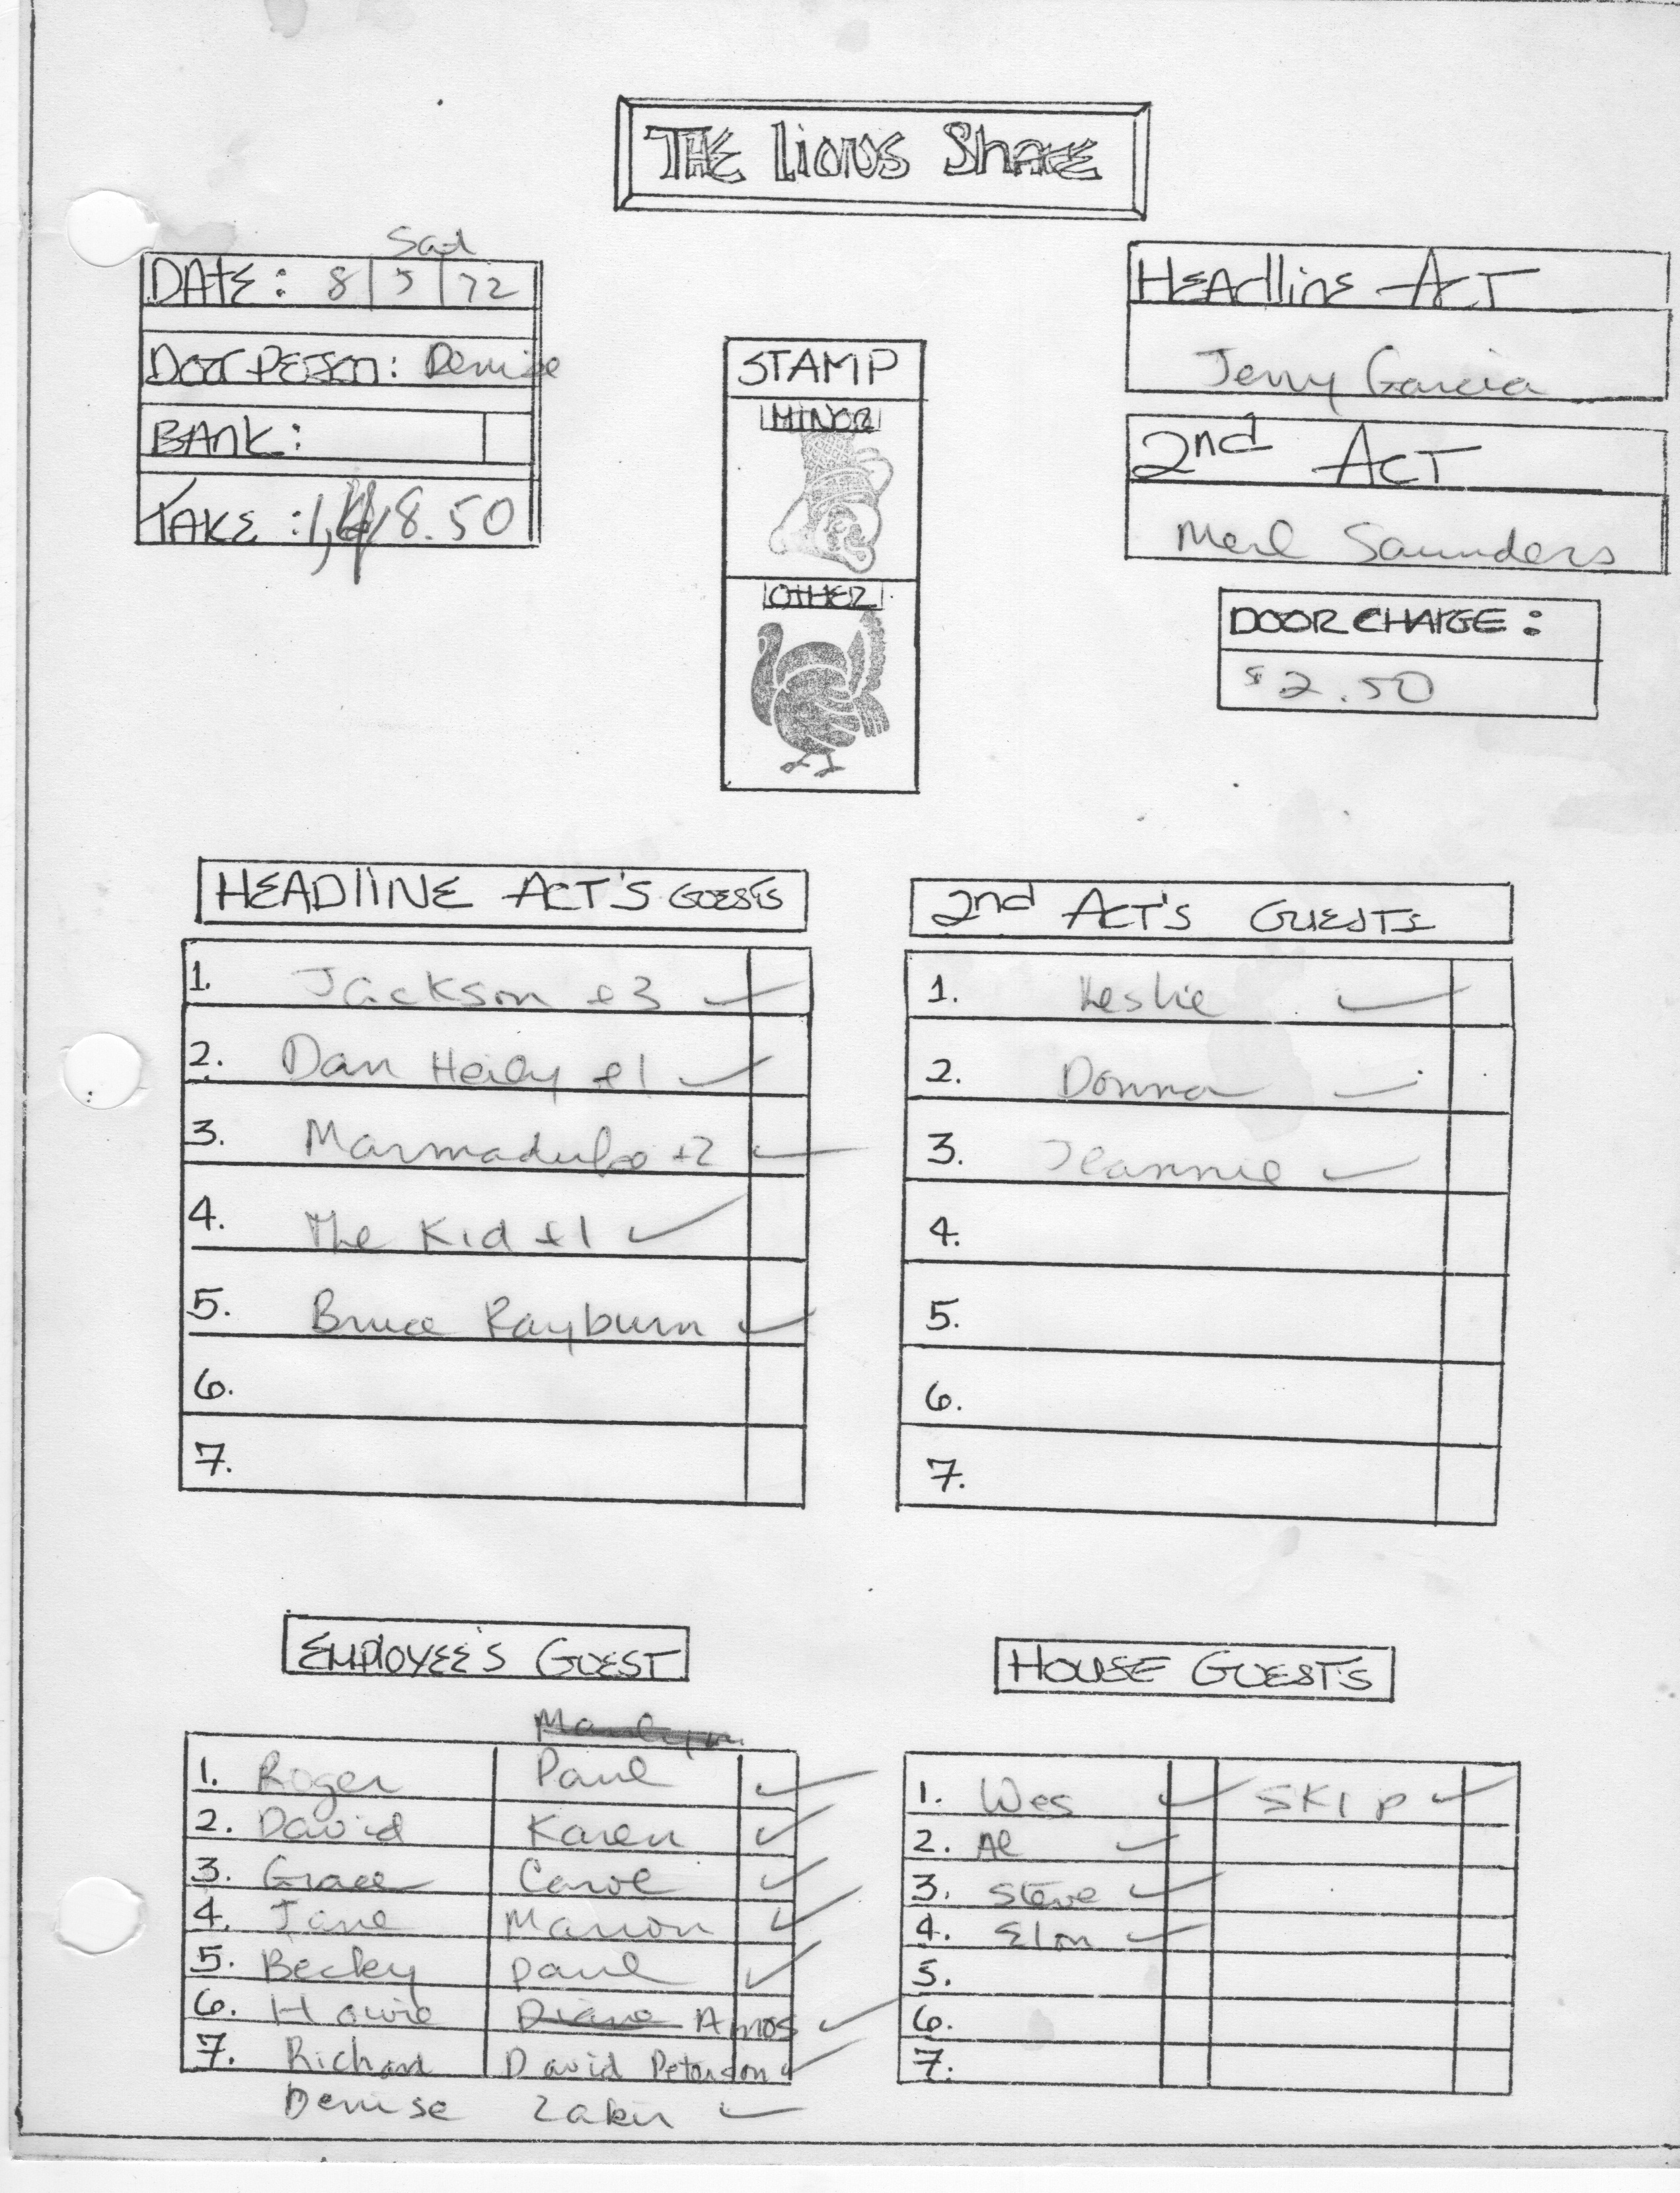 THE lIONS SHARE
Sat
DATE: 8/5/72
DOOR PERSON: Denise
BANK:
TAKE : 8.50
STAMP
MINOR
OTHER
HEAdlinE ACT
Jerry Garcia
2nd ACT
Merl Saunders
DOOR CHARGE:
$2.50
HEADlINE ACT'S GUESTS
1. Jackson +3 ✓
2. Dan Healy +1 ✓
3. Marmaduke +2 ✓
4. The Kid +1 ✓
5. Bruce Rayburn ✓
6.
7.
2nd ACT'S GUESTS
1. Leslie ✓
2. Donna ✓
3. Jeannie ✓
4.
5.
6.
7.
EMPlOYEE'S GUEST
1. Roger Paul ✓
2. David Karen ✓
3. Grace Carol ✓
4. Jane Marion ✓
5. Becky Paul ✓
6. Howie Diane Amos ✓
7. Richard David Peterson ✓
Denise Zakir ✓
HOUSE GUESTS
1. Wes ✓ SKIP ✓
2. Al ✓
3. Steve ✓
4. Elon ✓
5.
6.
7.